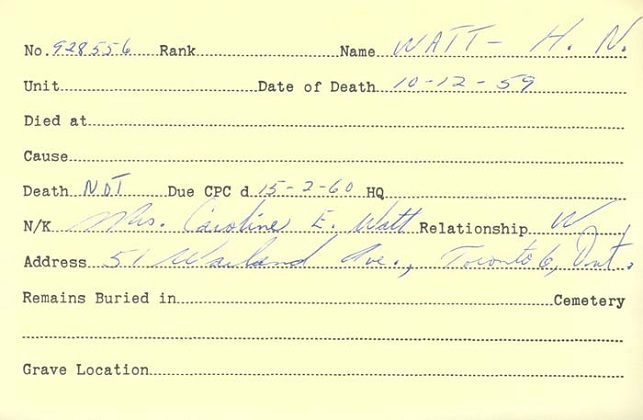 No. 928556 Rank Name WATT - H. N.
Unit Date of Death 10-12-59
Died at
Cause
Death NOT Due CPC d 15-2-60 HQ
N/K Mrs. Caroline E. Watt Relationship W
Address 51 Ave., Toronto 6, Ont.
Remains Buried in Cemetery
Grave Location